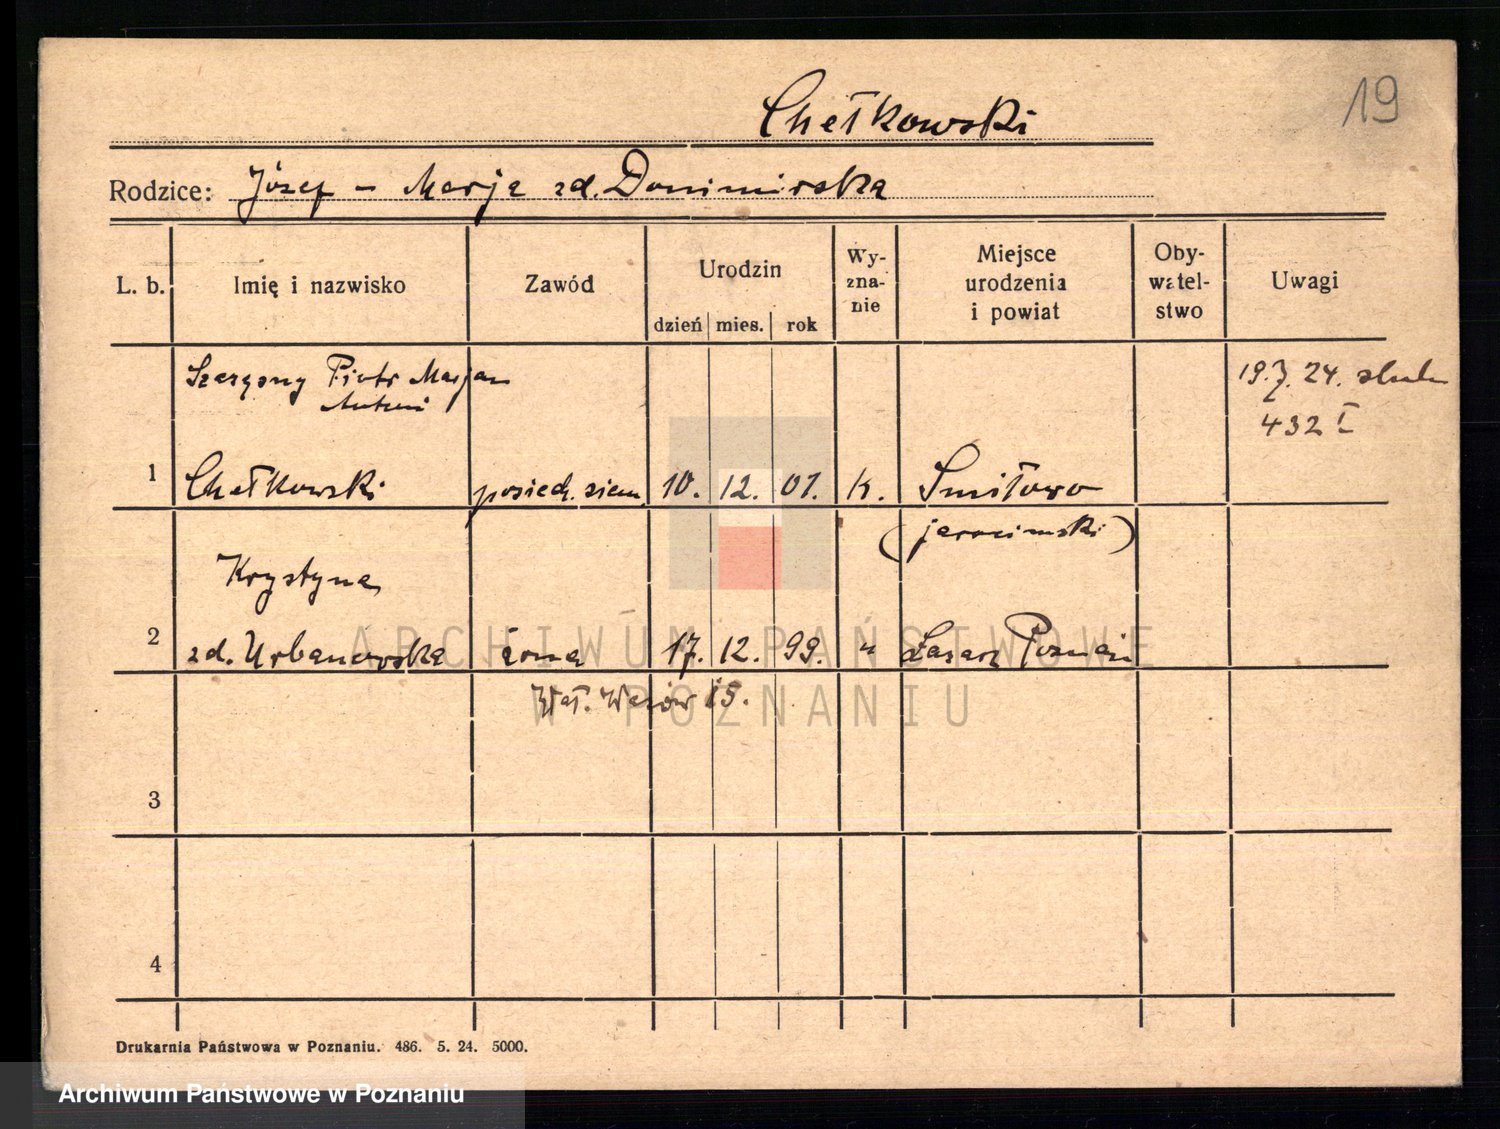 19
Chełkowski
Rodzice: Józef – Marja zd. Donimirska
L. b. Imię i nazwisko Zawód Urodzin dzień mies. rok Wy-zna-nie Miejsce urodzenia i powiat Oby-watel-stwo Uwagi
Szczęsny Piotr Marjan 19. 7. 24.
Antoni 432 I
1 Chełkowski posied. ziem. 10. 12. 01. k. Śmiłowo
(jarociński)
Krystyna
2 zd. Urbanowska żona 17. 12. 99. " Łazarz Poznań
Wał. Wazów 15.
3
4
Drukarnia Państwowa w Poznaniu. 486. 5. 24. 5000.
ARCHIWUM PAŃSTWOWE
W POZNANIU
Archiwum Państwowe w Poznaniu